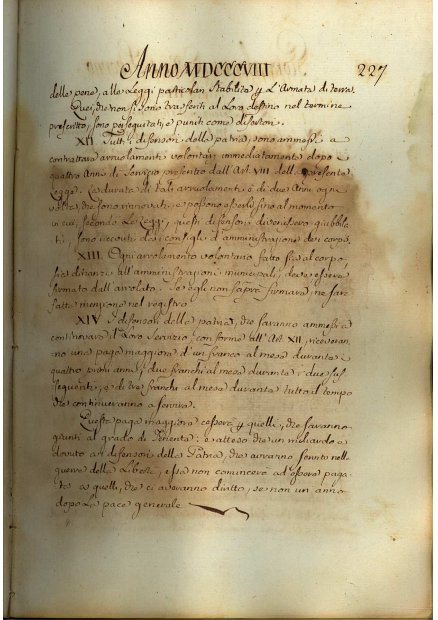 Anno MDCCCVIII 227
delle pene, alle Leggi particolari stabilite p L'Armata di terra.
Quei, che non si sono trasferiti al Loro destino nel termine
prescritto, sono perseguitati, e puniti come disertori.
XII. Tutti i difensori della patria, sono ammessi a
contrattare arruolamenti volontarj immediatamente dopo i
quattro Anni di servizio prescritto dall'Art. VIII della presente
Legge. La durata di tali arruolamenti è di due Anni ogni
volta, che sono rinovati, e possono esserlo sino al momento
in cui, secondo le Leggi, questi difensori divenissero giubbila-
ti; sono ricevuti dai consigli d'amministrazione dei corpi.
XIII. Ogni arruolamento volontario fatto sia al corpo,
sia dinanzi all'amministrazioni municipali, deve essere
firmato dall'arrolato. Se egli non saprà firmare, ne sarà
fatta menzione nel registro.
XIV. I difensori della patria, che saranno ammessi a
continovare il Loro servizio, conforme all'Art. XII, riceveran-
no una paga maggiore d'un franco al mese durante i
quattro primi anni; due franchi al mese durante i due sus-
seguenti, e di tre franchi al mese durante tutto il tempo
che continueranno a servire.
Questa paga maggiore cesserà p quelli, che saranno
giunti al grado di Tenente: e atteso che un miliardo è
dovuto ai difensori della Patria, che avranno servito nelle
guerre della Libertà, essa non comincerà ad essere paga-
ta a quelli, che ci averanno diritto, se non un anno
dopo La pace generale